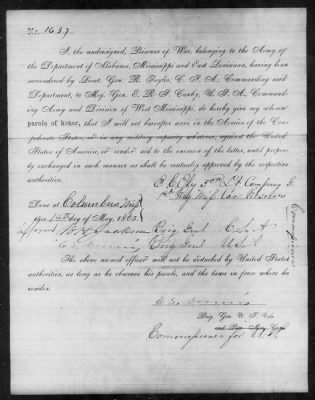 No. 1637.
I, the undersigned, Prisoner of War, belonging to the Army of
the Department of Alabama, Mississippi and East Louisiana, having been
surrendered by Lieut. Gen. R. Taylor, C. S. A., Commanding said
Department, to Maj. Gen. E. R. S. Canby, U. S. A., Command-
ing Army and Division of West Mississippi, do hereby give my solemn
parole of honor, that I will not hereafter serve in the Armies of the Con-
federate States, or in any military capacity whatever, against the United
States of America, or render aid to the enemies of the latter, until proper-
ly exchanged in such manner as shall be mutually approved by the respective
authorities.
Lt Company G
Miss Cav
Done at Columbus Miss
this day of May, 1865.
W H Jackson Brig Genl C. S. A
Brig Genl U S
Commissioners
The above named officer will not be disturbed by United States
authorities, as long as he observes his parole, and the laws in force where he
resides.
Brig. Gen. U. S. Vols.
Commissioner for U. S.